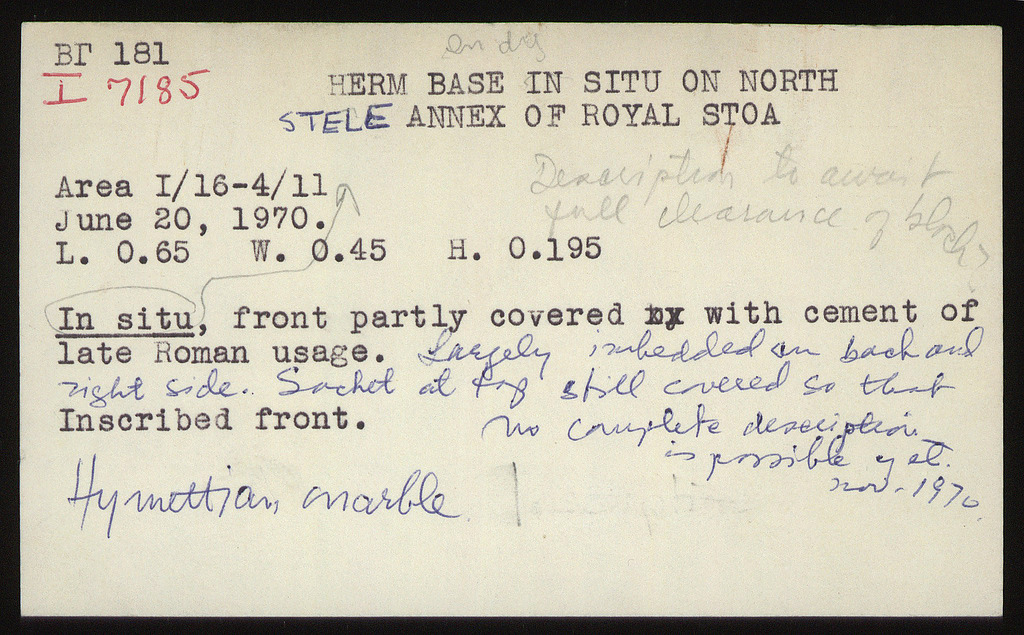 BΓ 181
on dig
I 7185
HERM BASE IN SITU ON NORTH
STELE ANNEX OF ROYAL STOA
Description to await
full clearance of block
Area I/16-4/11
June 20, 1970.
L. 0.65 W. 0.45 H. 0.195
In situ, front partly covered with cement of
late Roman usage. Largely imbedded on back and
right side. Socket at top still covered so that
no complete description
is possible yet.
Nov. 1970
Inscribed front.
Hymettian marble